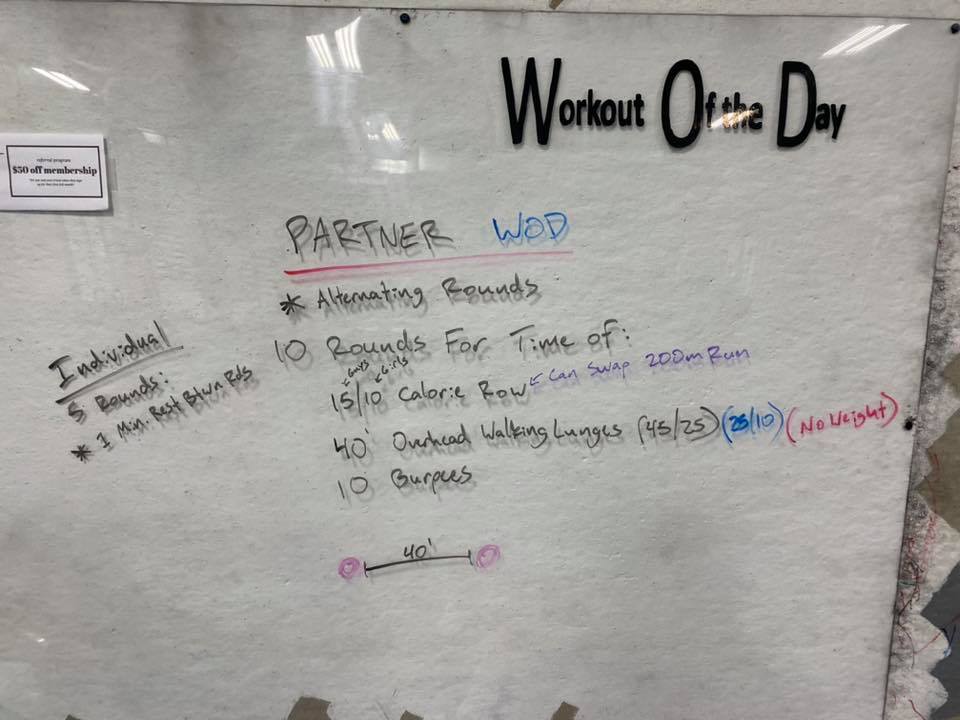 Workout Of the Day
referral program
$50 off membership
PARTNER WOD
* Alternating Rounds
10 Rounds For Time of:
Guys Girls
15/10 Calorie Row ← Can Swap 200m Run
40' Overhead Walking Lunges (45/25) (25/10) (No Weight)
10 Burpees
40'
Individual
5 Rounds:
* 1 Min. Rest Btwn Rds